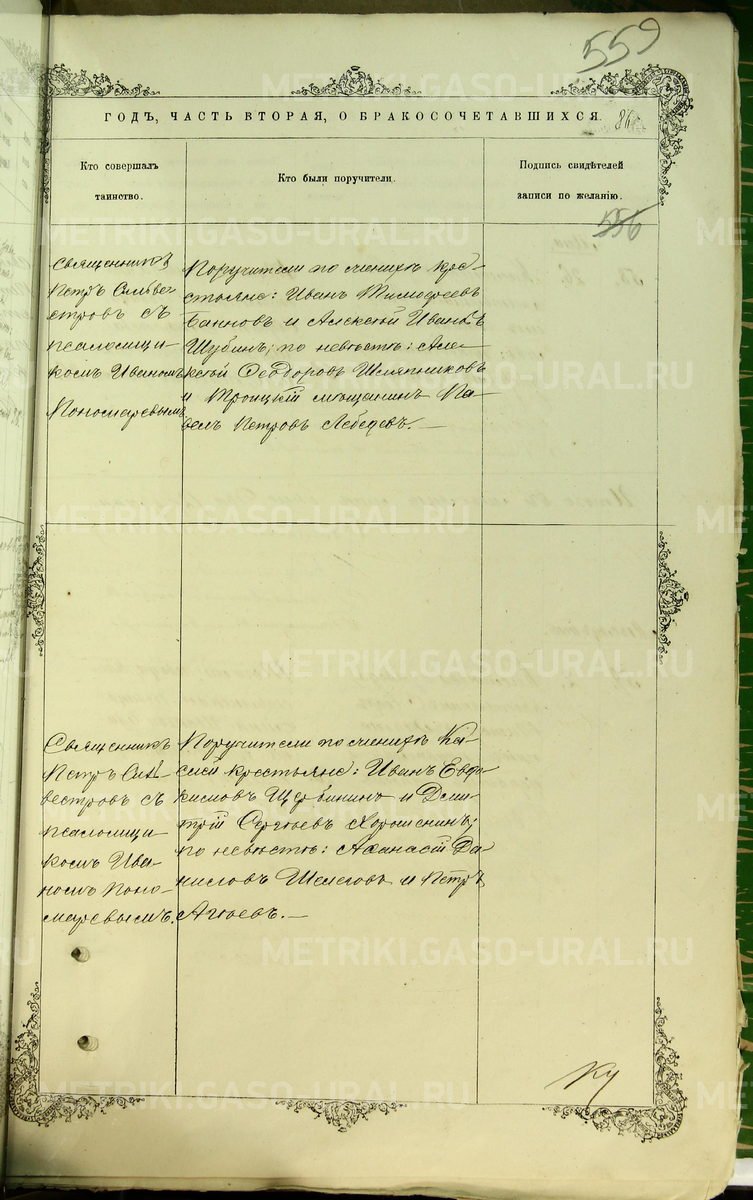 559
ГОДЪ, ЧАСТЬ ВТОРАЯ, О БРАКОСОЧЕТАВШИХСЯ.
Кто совершалъ
таинство.
Кто были поручители.
Подпись свидѣтелей
записи по желанію.
556
Священникъ
Петръ Сильве-
стровъ съ
псаломщи-
комъ Иваномъ
Пономаревымъ
Поручители по женихѣ кре-
стьяне: Иванъ Тимофеевъ
Банновъ и Алексѣй Ивановъ
Шубинъ; по невѣстѣ: Але-
ксѣй Феодоровъ Шляпниковъ
и Троицкій мѣщанинъ Па-
велъ Петровъ Лебедевъ.
Священникъ
Петръ Силь-
вестровъ съ
псаломщи-
комъ Ива-
номъ Поно-
маревымъ.
Поручители по женихѣ
крестьяне: Иванъ Евдо-
кимовъ Щербининъ и Дми-
трій Сергѣевъ Хорошенинъ;
по невѣстѣ: Афанасій Да-
ниловъ Шелеговъ и Петръ
Агѣевъ.
METRIKI.GASO-URAL.RU